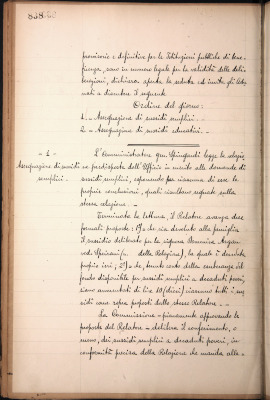 provvisorie e definitive per le Istituzioni pubbliche di bene-
ficenza, sono in numero legale per la validità delle deli-
berazioni, dichiara aperta la seduta ed invita gli adu-
nati a discutere il seguente
Ordine del giorno:
1. Assegnazione di sussidi semplici.
2. Assegnazione di sussidi educativi.
- 1 -
Assegnazione di sussidi
semplici.
L'Amministratore legge la relazio
ne predisposta dall'Ufficio in merito alle domande di
sussidi semplici, esponendo per ciascuna di esse le
proprie conclusioni, quali risultano segnate sulla
stessa relazione.
Terminata la lettura, il Relatore avanza due
formali proposte: 1ª che sia devoluto alla famiglia
il sussidio deliberato per la signora
della Relazione), la quale è deceduta
proprio ieri; 2ª che, tenuto conto della
fondo disponibile per sussidi semplici a decaduti poveri,
siano aumentati di lire 10 (dieci) ciascuno tutti i sus
sidi come sopra proposti dallo stesso Relatore.
La Commissione - pienamente approvando le
proposte del Relatore - delibera il conferimento,
dei sussidi semplici a decaduti poveri, in
conformità precisa della Relazione che manda alle-